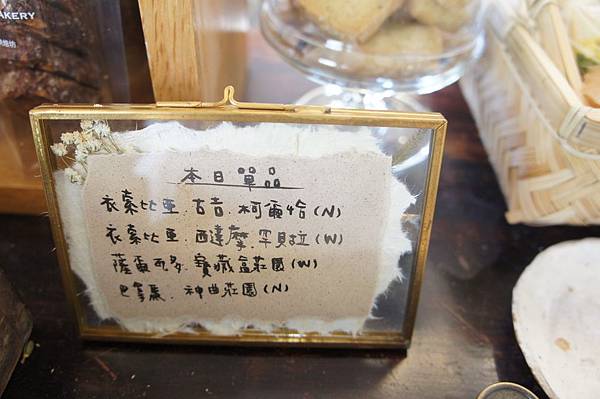 AKERY
本日單品
衣索比亞.古吉.柯爾恰(N)
衣索比亞.西達摩.罕貝拉(W)
薩爾瓦多.寶藏盒莊園(W)
巴拿馬.神曲莊園(N)